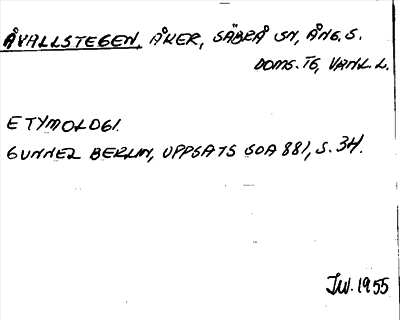 ÅVALLSTEGEN, ÅKER, SÄBRÅ SN, ÅNG. S.
DOMS. TG, VANL. L.
ETYMOLOGI.
GUNNEL BERLIN, UPPSATS SOA 881, S. 34.
IW. 1955